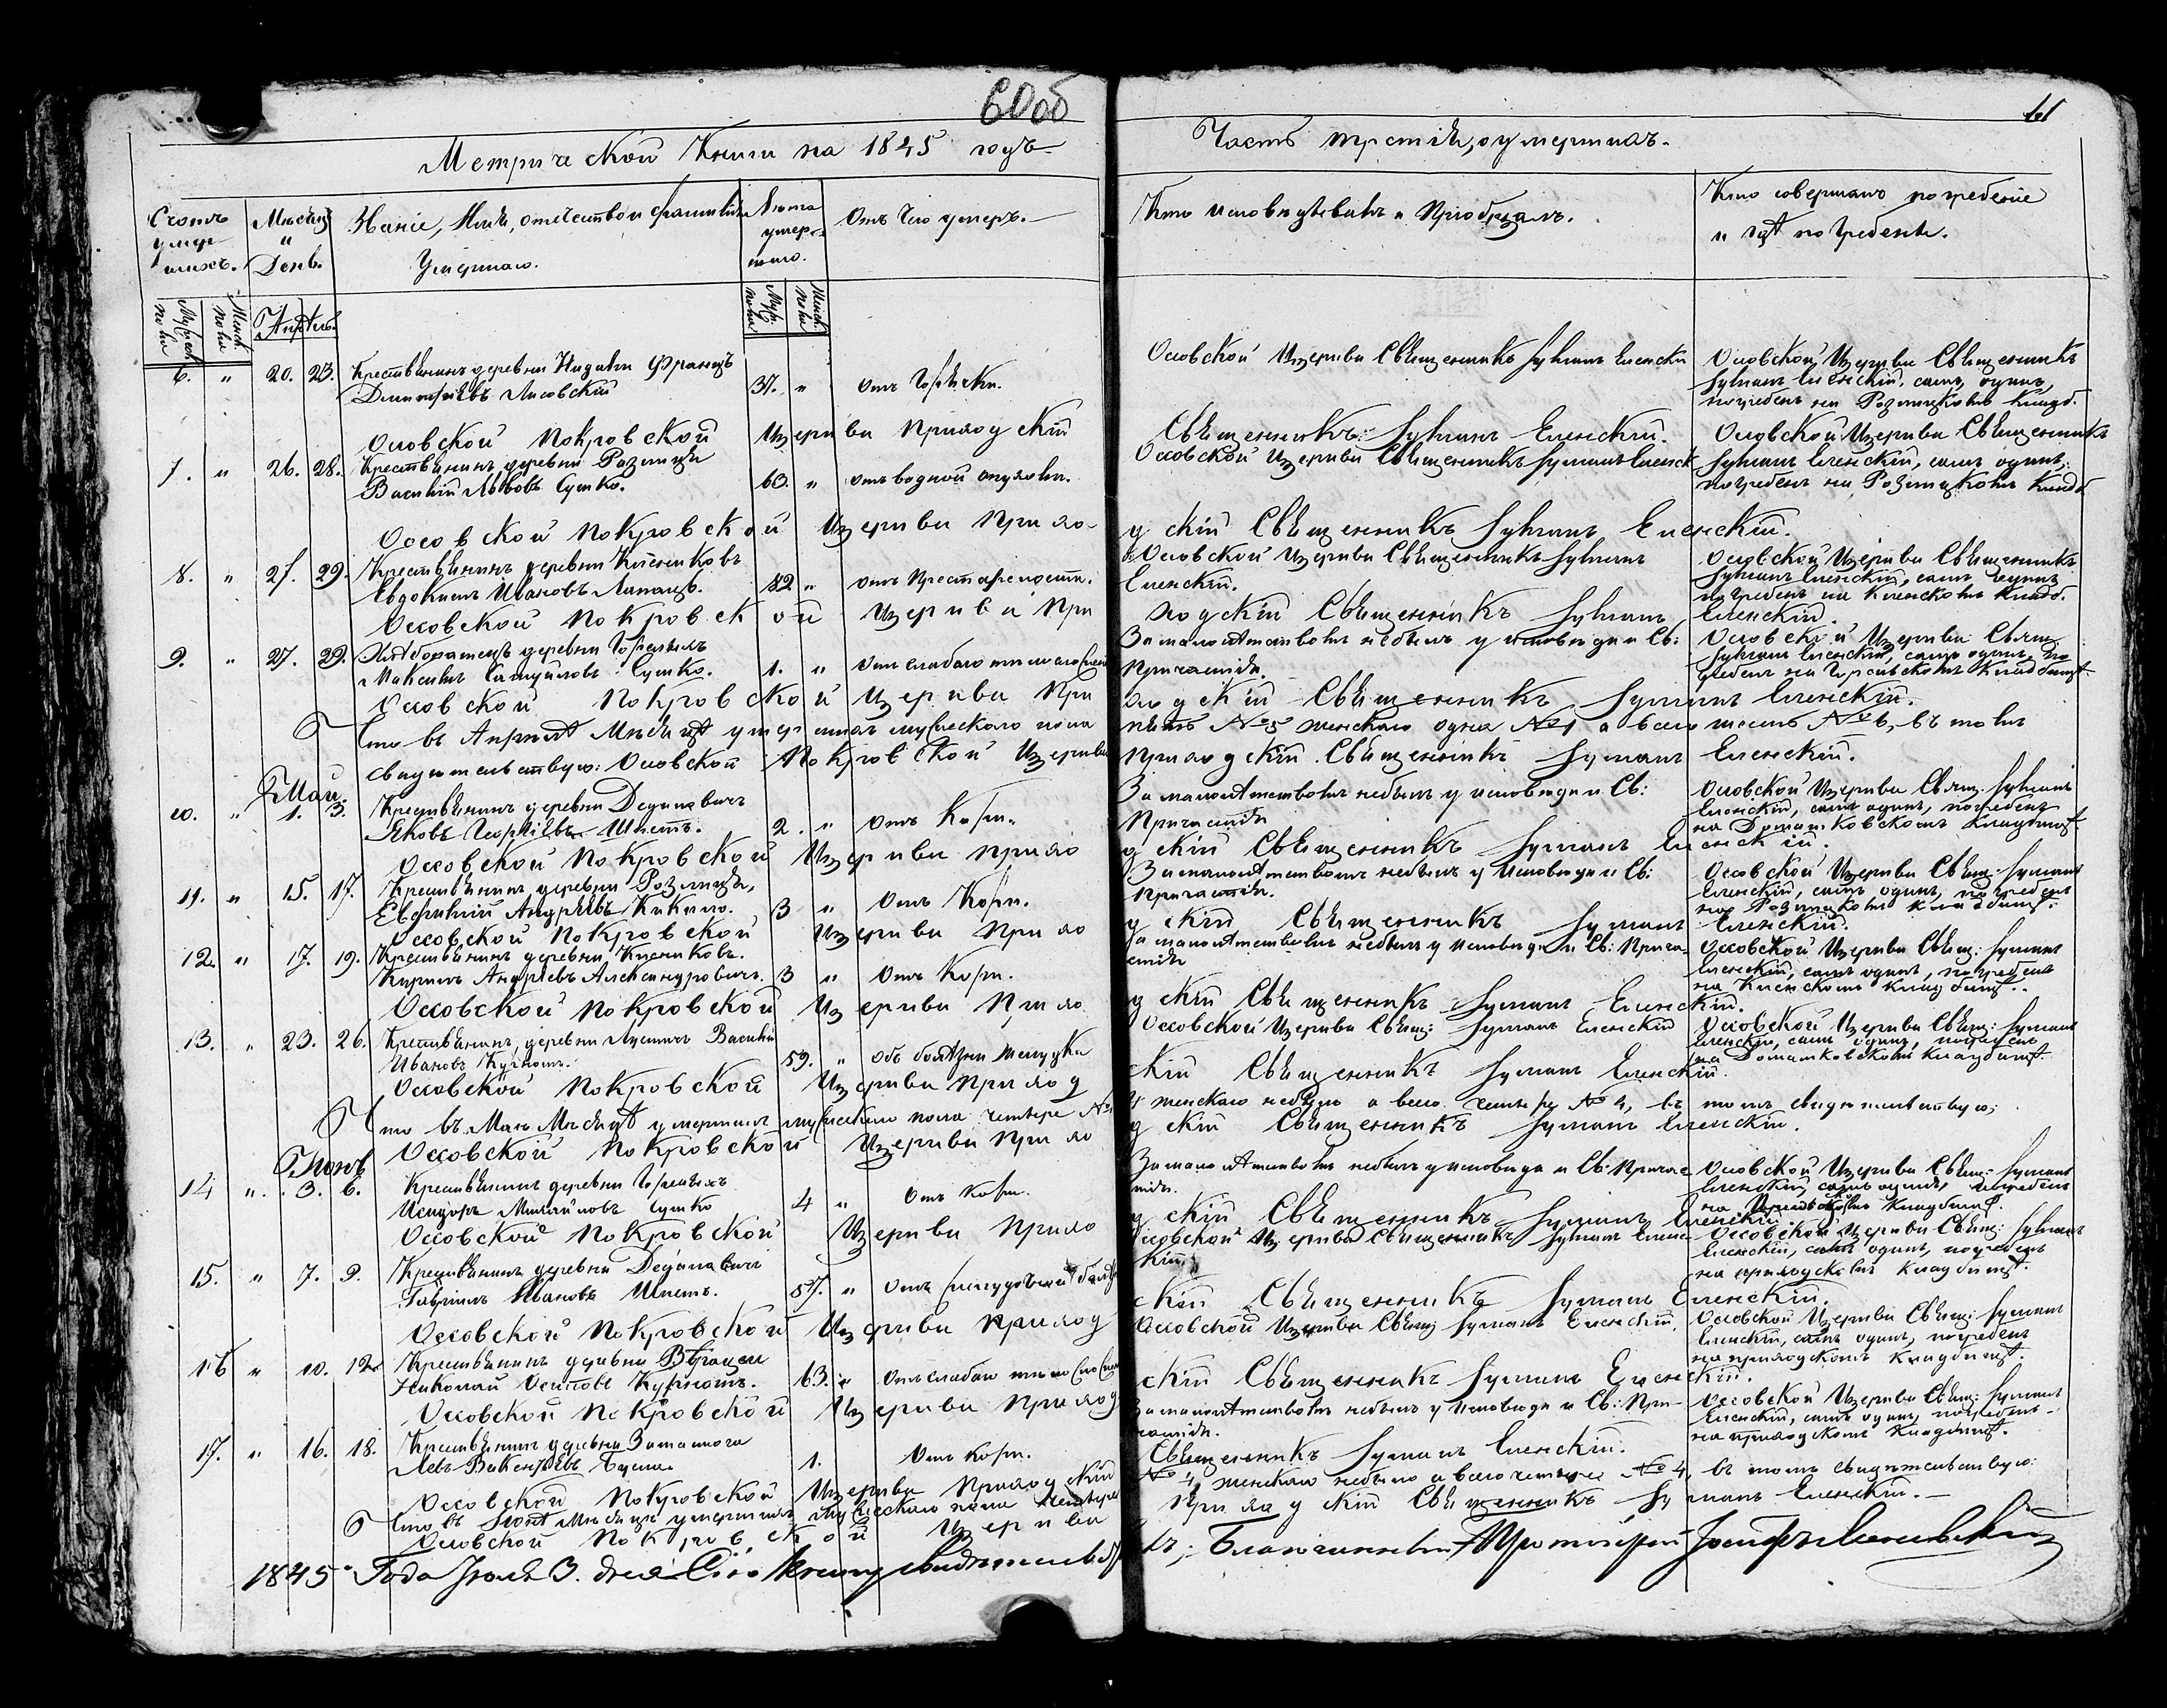 60об
61
Метрической Книги на 1845 годъ
Часть третія, о умершихъ.
Счотъ умершихъ.
Мѣсяцъ и День.
Званіе, Имя, отечество и фамилія Умершаго.
Лѣта умершаго.
Отъ Чего умеръ.
Кто исповѣдывалъ и Пріобщалъ.
Кто совершалъ погребеніе и гдѣ погребены.
Мужеск. пола
Женск. пола
Апрѣль
Муж. пола
Женск. пола
6. " 20. 23. Крестьянинъ деревни Францъ
Дмитріевъ Лисовскій 37. " отъ Горячки.
Осовской Церкви Священникъ Іуліанъ Еленскій
Осовской Церкви Священникъ
Іуліанъ Еленскій, самъ одинъ,
погребенъ на Кладб.
Осовской Покровской Церкви Приходскій Священникъ Іуліанъ Еленскій.
7. " 26. 28. Крестьянинъ деревни
Василій Львовъ Сушко. 63. " отъ водной опухоли.
Осовской Церкви Священникъ Іуліанъ Еленск
Осовской Церкви Священникъ
Іуліанъ Еленскій, самъ одинъ,
погребенъ на Кладб
Осовской Покровской Церкви Приходскій Священникъ Іуліанъ Еленскій.
8. " 27. 29. Крестьянинъ деревни
Евдокимъ Ивановъ 82 " отъ Престарелости.
Осовской Церкви Священникъ Іуліанъ
Еленскій.
Осовской Церкви Священникъ
Іуліанъ Еленскій, самъ одинъ
погребенъ на Кладб.
Осовской Покровской Церкви Приходскій Священникъ Іуліанъ Еленскій.
9. " 27. 29. деревни
Максимъ Самуйловъ Сушко. 1. " отъ слабаго
За малолѣтствомъ небылъ у исповѣди и Св:
Причастія.
Осовской Церкви Свящ
Іуліанъ Еленскій, самъ одинъ, по
гребенъ на Кладбищѣ.
Осовской Покровской Церкви Приходскій Священникъ Іуліанъ Еленскій.
Что въ Апрѣлѣ Мѣсяцѣ умершихъ мужескаго пола
пять №5 женскаго одна №1 а всего шесть №6, въ томъ
свидетельствую: Осовской Покровской Церкви Приходскій Священникъ Іуліанъ Еленскій.
Май
10. " 1. 3. Крестьянинъ деревни Деданавичъ
Яковъ Георгіевъ Шпетъ. 2. " отъ Кори.
За малолѣтствомъ небылъ у исповѣди и Св:
Причастія
Осовской Церкви Свящ. Іуліанъ
Еленскій, самъ одинъ, погребенъ
на Домашковскомъ Кладбищѣ.
Осовской Покровской Церкви Приходскій Священникъ Іуліанъ Еленскій.
11. " 15. 17. Крестьянинъ деревни
Андреевъ 3 " отъ Кори.
За малолѣтствомъ небылъ у Исповѣди и Св:
Причастія.
Осовской Церкви Священ: Іуліанъ
Еленскій, самъ одинъ, погребенъ
на Кладбищѣ.
Осовской Покровской Церкви Приходскій Священникъ Іуліанъ Еленскій.
12. " 17. 19. Крестьянинъ деревни
Кирилъ Андреевъ Александровичъ. 3 " отъ Кори.
За малолѣтствомъ небылъ у исповѣди и Св: Прича-
стія
Осовской Церкви Священ: Іуліанъ
Еленскій, самъ одинъ, погребенъ
на Кладбищѣ.
Осовской Покровской Церкви Приходскій Священникъ Іуліанъ Еленскій.
13. " 23. 26. Крестьянинъ деревни Василій
Ивановъ 59. " объ болѣзни желудка
Осовской Церкви Священ: Іуліанъ Еленскій
Осовской Церкви Священ: Іуліанъ
Еленскій, самъ одинъ, погребенъ
на Домашковскомъ Кладбищѣ.
Осовской Покровской Церкви Приходскій Священникъ Іуліанъ Еленскій.
Что въ Маѣ Мѣсяцѣ умершихъ мужескаго пола четыре №
4 женскаго небыло а всего четыре №4, въ томъ свидетельствую:
Осовской Покровской Церкви Приходскій Священникъ Іуліанъ Еленскій.
Іюнь
14 " 3. 6. Крестьянинъ деревни
Исидоръ Михайловъ Сушко 4 " Отъ кори.
За малолѣтствомъ небылъ у исповѣди и Св: Прича
стія.
Осовской Церкви Священ: Іуліанъ
Еленскій, самъ одинъ, погребенъ
на Кладбищѣ.
Осовской Покровской Церкви Приходскій Священникъ Іуліанъ Еленскій
15. " 7. 9. Крестьянинъ деревни Деданавичъ
Гавріилъ Ивановъ Шпетъ. 57. "
Осовской Церкви Священникъ Іуліанъ Еленс
кій
Осовской Церкви Священ: Іуліанъ
Еленскій, самъ одинъ, погребенъ
на приходскомъ Кладбищѣ.
Осовской Покровской Церкви Приходскій Священникъ Іуліанъ Еленскій.
16 " 10. 12. Крестьянинъ деревни
Николай Осиповъ 63. " Отъ слабаго
Осовской Церкви Священ Іуліанъ Еленскій.
Осовской Церкви Священ: Іуліанъ
Еленскій, самъ одинъ, погребенъ
на приходскомъ Кладбищѣ.
Осовской Покровской Церкви Приходскій Священникъ Іуліанъ Еленскій.
17. " 16. 18. Крестьянинъ деревни
Левъ Викентіевъ 1. Отъ кори.
За малолѣтствомъ небылъ у Исповѣди и Св: При-
частія.
Осовской Церкви Священ: Іуліанъ
Еленскій, самъ одинъ, погребенъ
на приходскомъ Кладбищѣ.
Осовской Покровской Церкви Приходскій Священникъ Іуліанъ Еленскій.
Что въ Іюнѣ Мѣсяцѣ умершихъ мужескаго пола четыре
№4, женскаго небыло а всего четыре №4, въ томъ свидѣтельствую:
Осовской Покровской Церкви Приходскій Священникъ Іуліанъ Еленскій.
1845 Года Іюля 3. дня Сію книгу свидѣтельств Благочинный Протоіерей